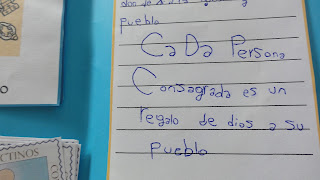 pueblo
CaDa Persona
Consagrada es un
regalo de dios a su
pueblo
O
CTINOS